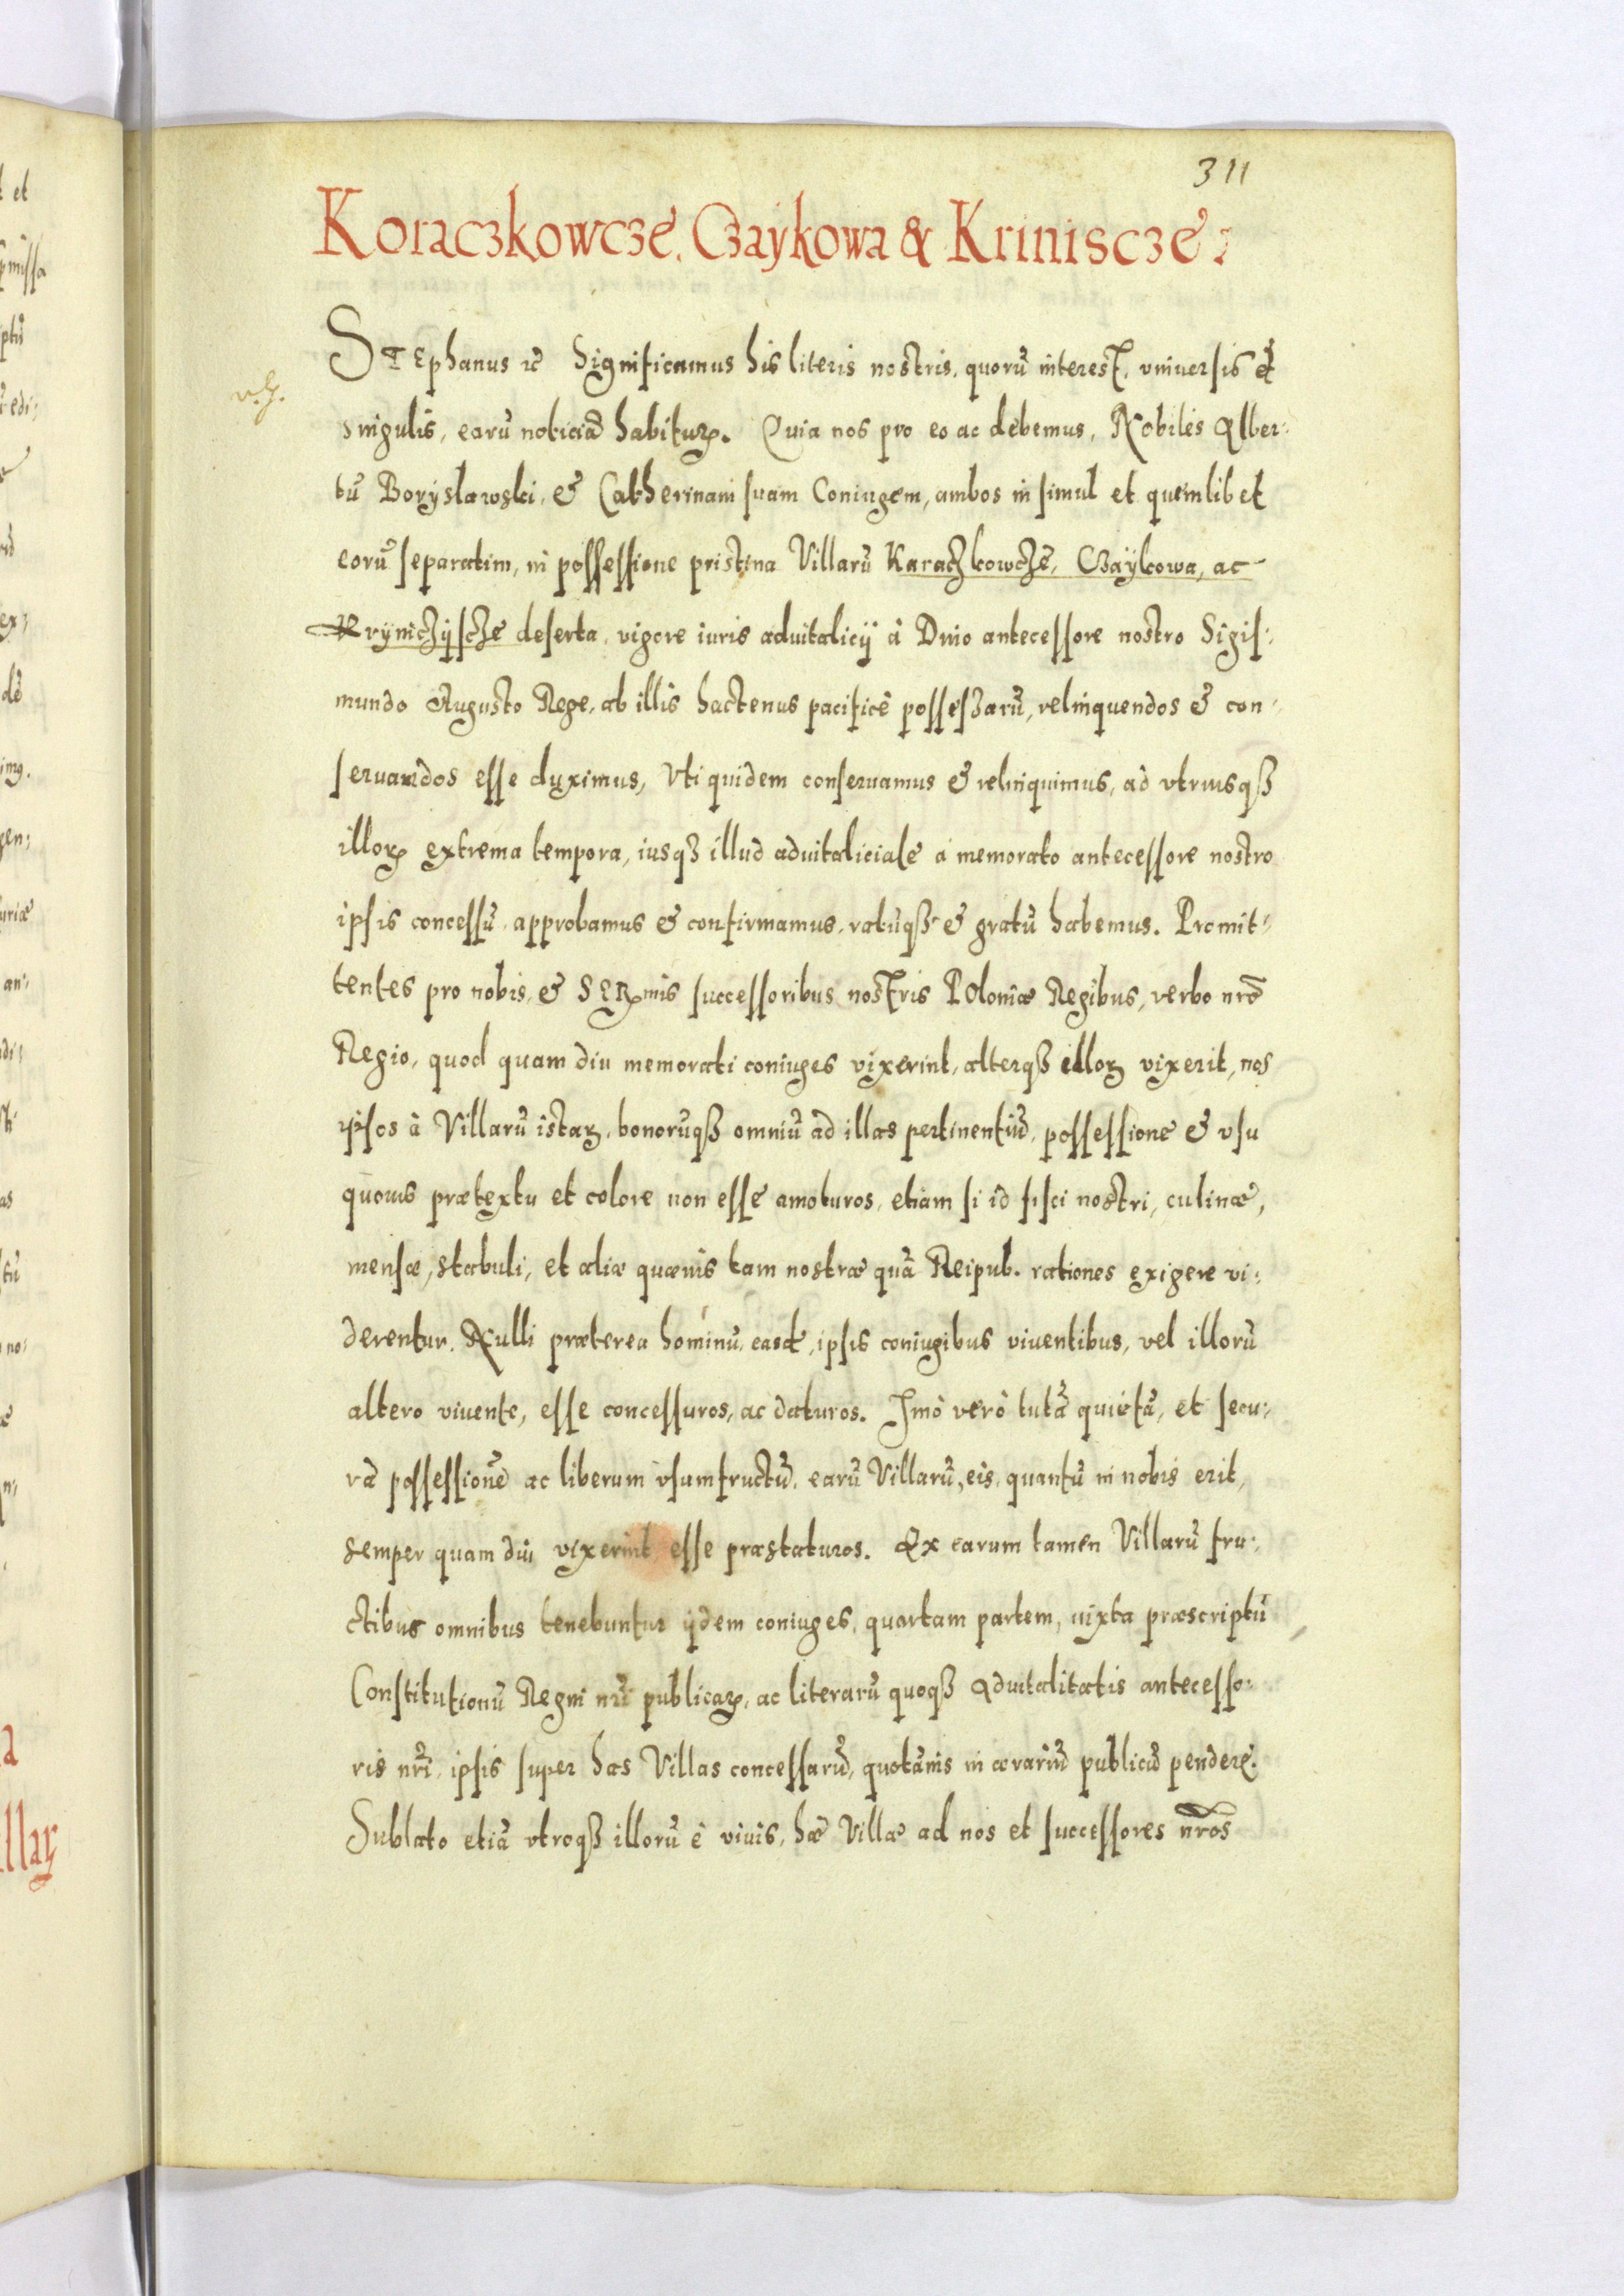 311
Koraczkowcze, Czaÿkowa & Kriniscze.
STEphanus etc̃ Significamus his literis nostris, quorũ interest, vniuersis et
singulis, earũ noticiã habiturꝝ. Quia nos pro eo ac debemus, Nobiles Alber:
tũ Borÿslawski, & Catherinam suam Coniugem, ambos in simul et quemlibet
eorũ separatim, in possessione pristina Villarũ Karaczkowcze, Czaÿkowa, ac
Krÿniczÿscze deserta, vigore iuris aduitalicÿ à Dnĩo antecessore nostro Sigis:
mundo Augusto Rege, ab illis hactenus pacificè possessarũ, relinquendos & con:
seruandos esse duximus, Vti quidem conseruamus & relinquimus, ad vtriusqꝫ
illorꝝ extrema tempora, iusqꝫ illud aduitaliciale à memorato antecessore nostro
ipsis concessũ, approbamus & confirmamus, ratũqꝫ & gratũ habemus. Promit:
tentes pro nobis, & SERmis successoribus nostris POloniæ Regibus, verbo nrõ
Regio, quod quam diu memorati coniuges vixerint, alterqꝫ illorꝝ vixerit, nos
ipsos à Villarũ istarꝝ, bonorũqꝫ omniũ ad illas pertinentiũ, possessione & vsu
quouis prætextu et colore non esse amoturos, etiam si id fisci nostri, culinæ,
mensæ, stabuli, et aliæ quæuis tam nostræ quã Reipub. rationes exigere vi:
derentur. Nulli præterea hominũ, easdẽ, ipsis coniugibus viuentibus, vel illorũ
altero viuente, esse concessuros, ac daturos. Imò verò tutã quietã, et secu:
rã possessionẽ ac liberum vsumfructũ, earũ Villarũ, eis, quantũ in nobis erit,
semper quam diu vixerint esse præstaturos. Ex earum tamen Villarũ fru:
ctibus omnibus tenebuntur ÿdem coniuges, quartam partem, iuxta præscriptũ
Constitutionũ Regni nrĩ publicarꝝ, ac literarũ quoqꝫ aduitalitatis antecesso:
ris nrĩ, ipsis super has Villas concessarũ, quotãnis in ærariũ publicũ pendere.
Sublato etiã vtroqꝫ illorũ è viuis, hæ Villæ ad nos et successores nrõs